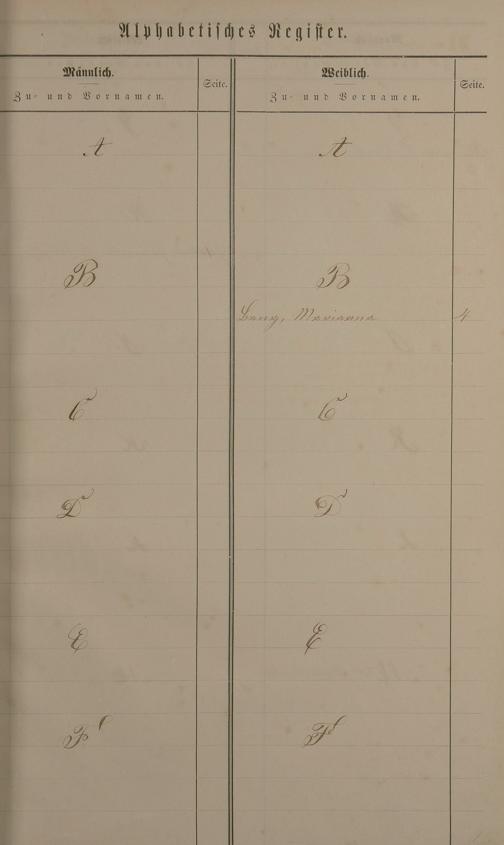 Alphabetisches Register.
Männlich.
Zu- und Vornamen.
Seite.
Weiblich.
Zu- und Vornamen.
Seite.
A
A
B
B
Marianna
4
C
C
D
D
E
E
F
F